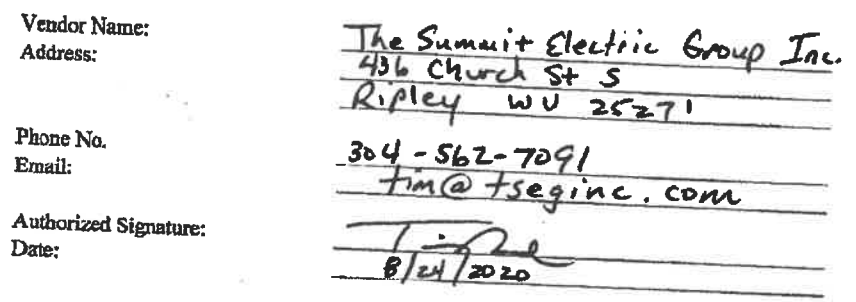 Vendor Name: The Summit Electric Group Inc.
Address: 436 Church St S
Ripley WV 25271
Phone No. 304-562-7091
Email: tim@tseginc.com
Authorized Signature:
Date: 8/24/2020